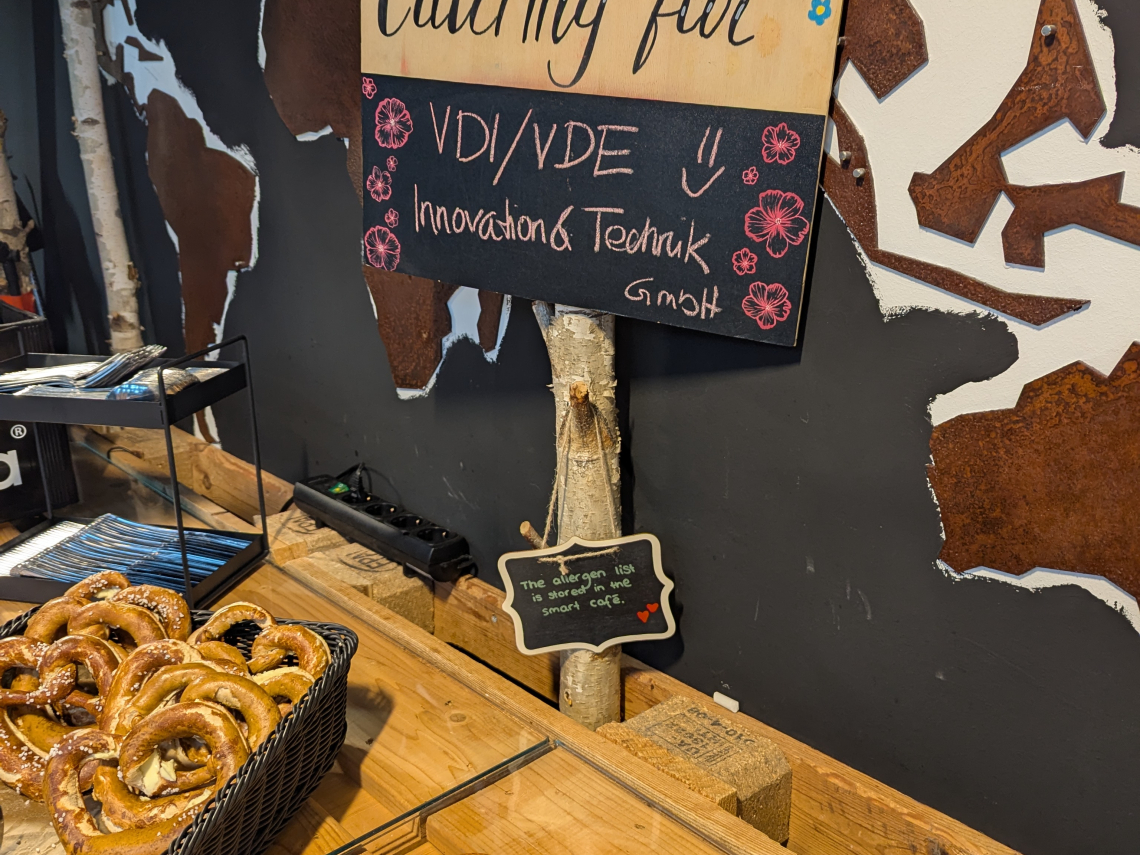 Catering für
VDI/VDE
Innovation & Technik
GmbH
The allergen list
is stored in the
smart café.
®
a